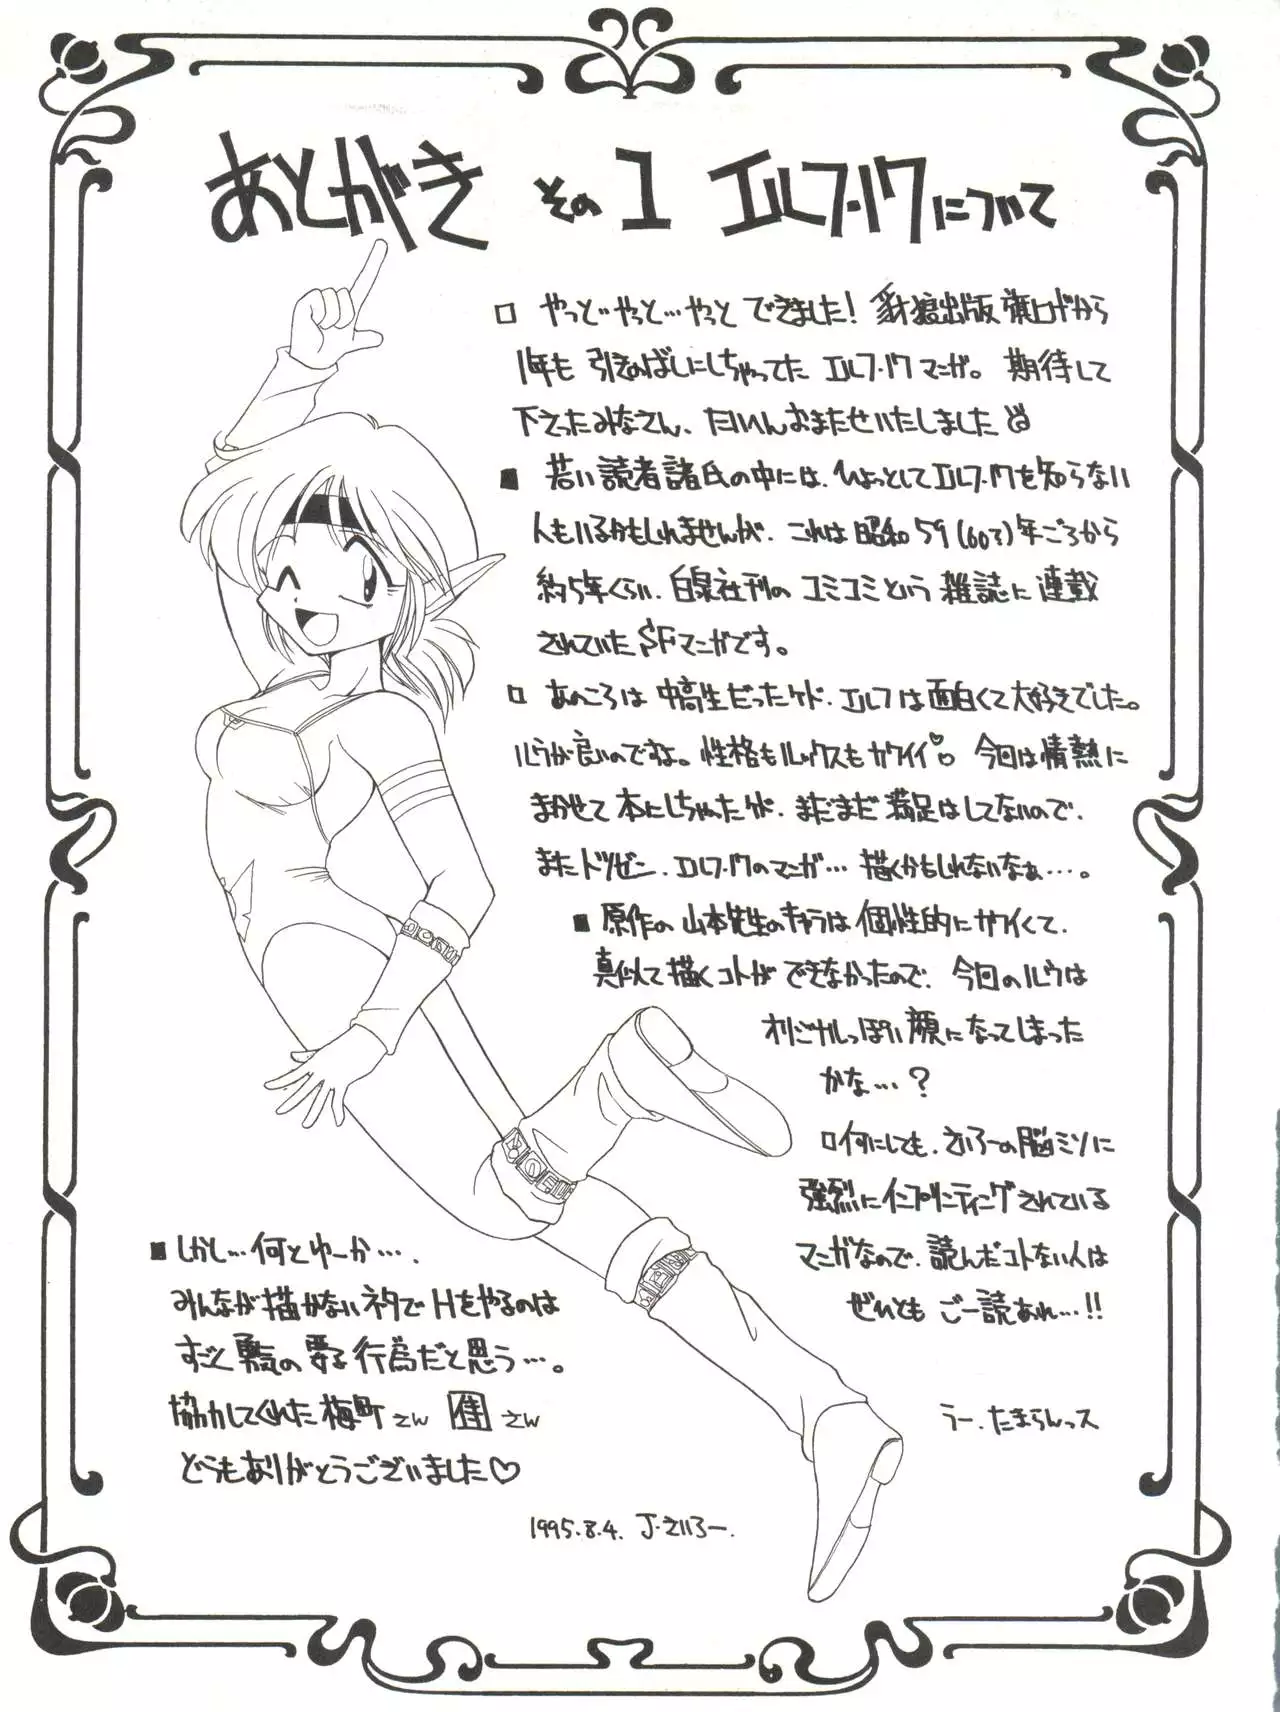 あとがき その1 エルフ・17について
□ やっと…やっと…やっと できました! 豺狼出版 旗上げから
1年も 引きのばしにしちゃってた エルフ・17 マンガ。 期待して
下さったみなさん、たいへんおまたせいたしました
■ 若い読者諸氏の中には、ひょっとしてエルフ・17を知らない
人もいるかもしれませんが、これは昭和59(60?)年ごろから
約5年くらい、白泉社刊のコミコミという雑誌に連載
されていたSFマンガです。
□ あのころは中高生だったケド、エルフは面白くて大好きでした。
ルウが良いのですよ。性格もルックスもカワイイ♡ 今回は情熱に
まかせて本にしちゃったケド、まだまだ満足はしてないので、
またトツゼン、エルフ・17のマンガ…描くかもしれないなぁ…。
■ 原作の山本先生のキャラは個性的にカワイくて、
真似て描くコトができなかったので、今回のルウは
オリジナルっぽい顔になってしまった
かな…?
□何にしても、さいろーの脳ミソに
強烈にインプリンティングされている
マンガなので、読んだコトない人は
ぜひとも ご一読あれ…!!
うー、たまらんっス
■ しかし…何とゆーか…、
みんなが描かないネタでHをやるのは
すごく勇気の要る行為だと思う…。
協力してくれた梅町さん 佳さん
どうもありがとうございました♡
1995.8.4. J・さいろー.